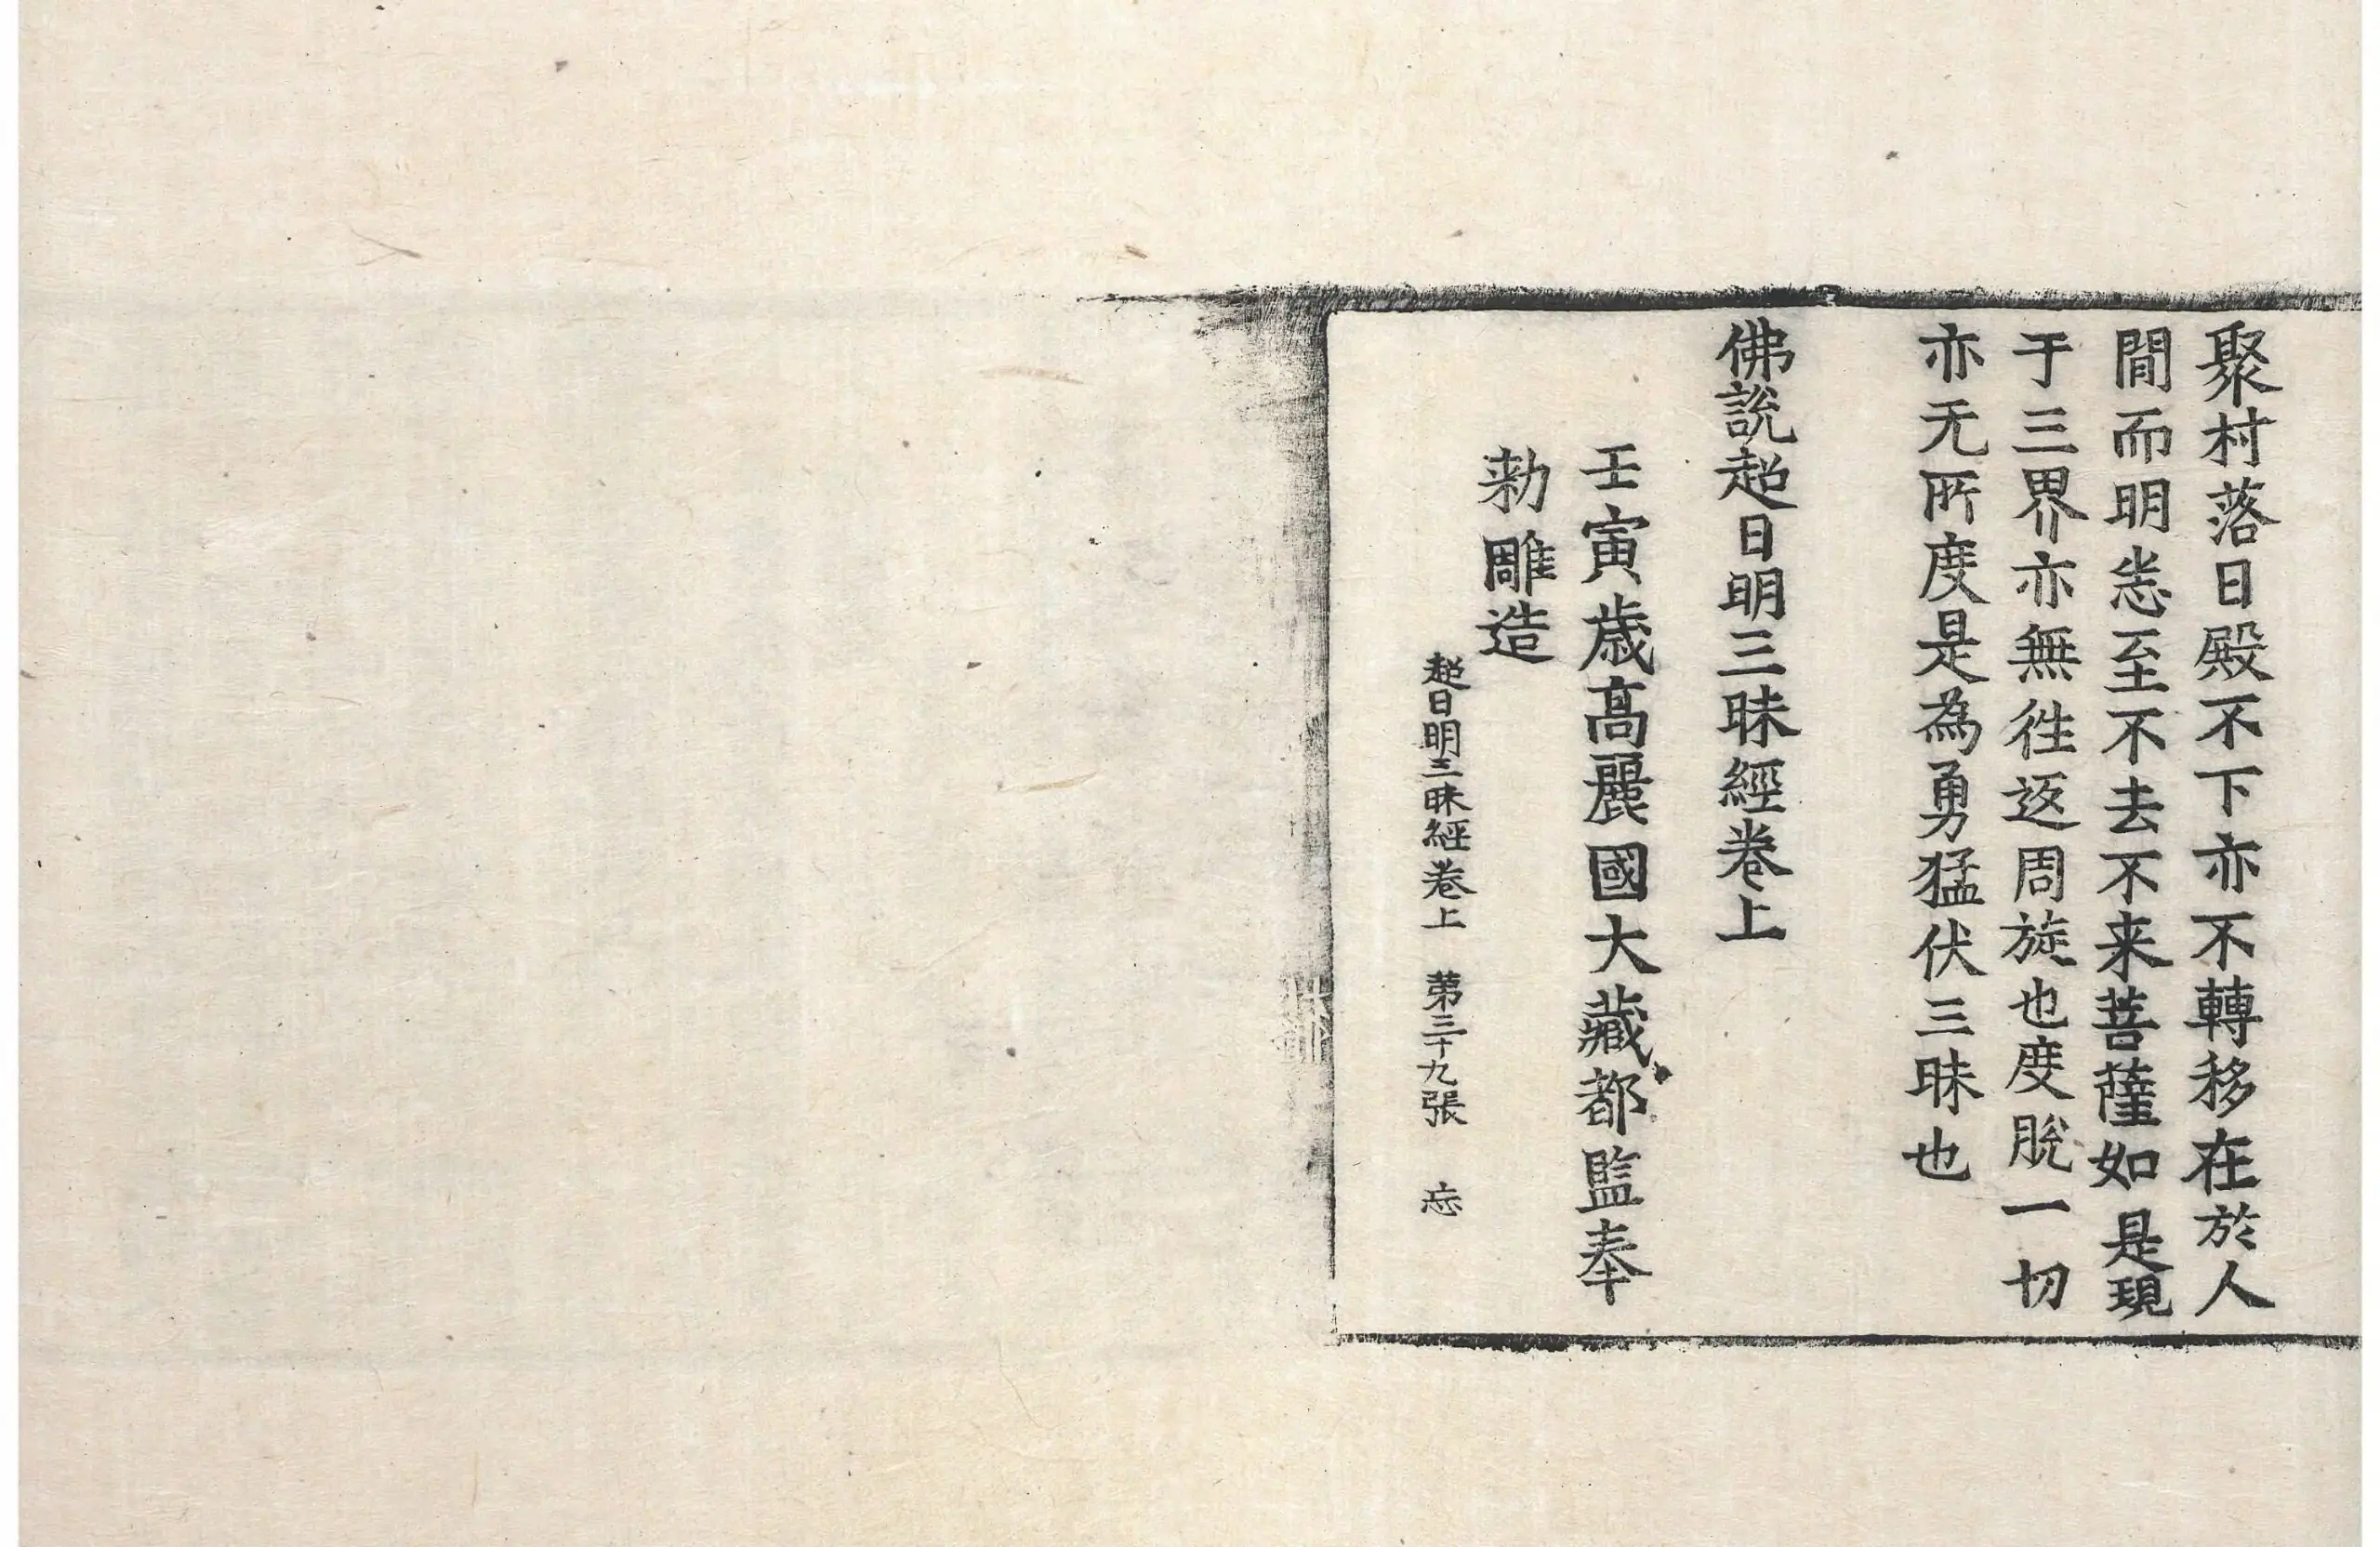 聚村落日殿不下亦不轉移在於人
間而明悉至不去不来菩薩如是現
于三界亦無徃返周旋也度脫一切
亦无所度是為勇猛伏三昧也
佛說超日明三昧經卷上
壬寅歲高麗國大藏都監奉
勑雕造
超日明三昧經卷上 第三十九張 忘